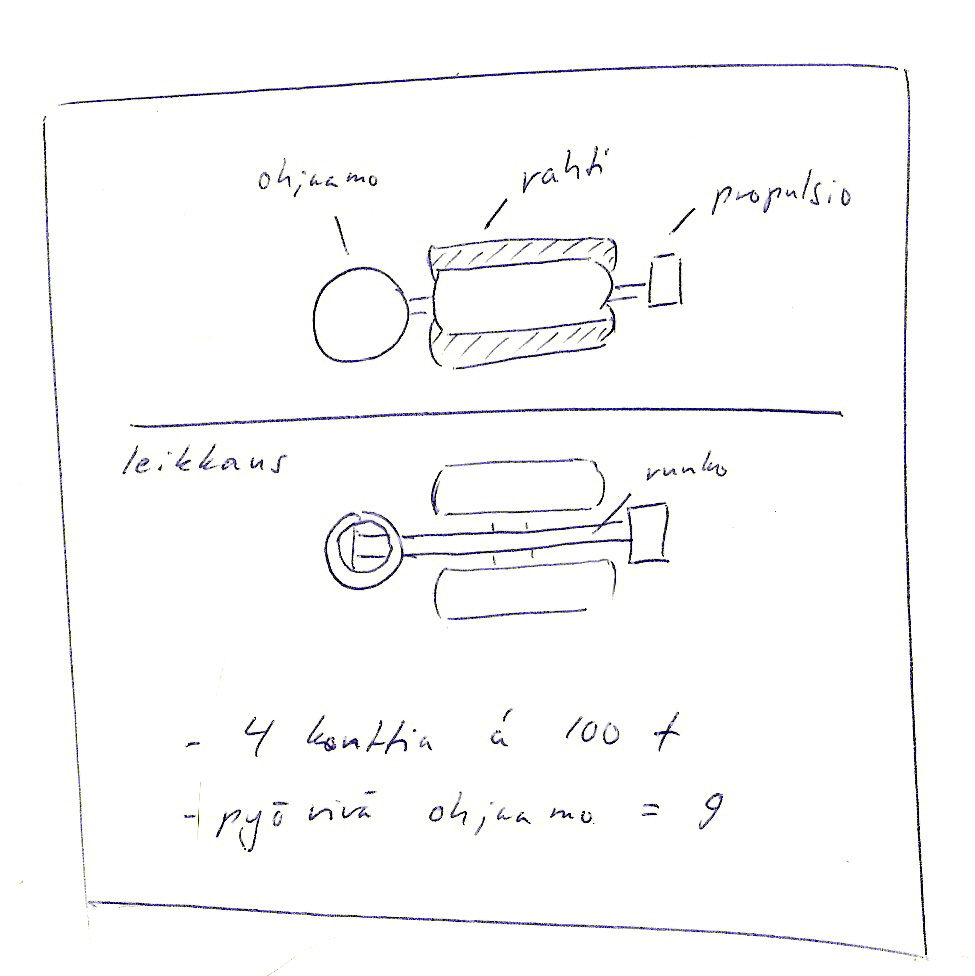 ohjaamo
rahti
propulsio
leikkaus
runko
- 4 konttia á 100 t
- pyörivä ohjaamo = g